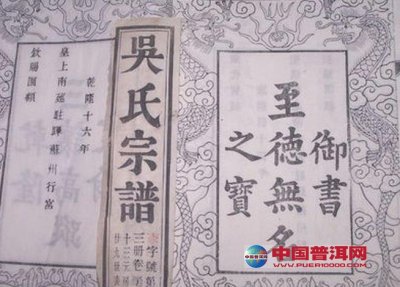 御書
至德無名
之寶
吳氏宗譜
乾隆十六年
皇上南巡駐蹕蘇州行宮
欽賜匾額
中国普洱网